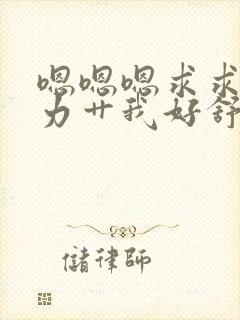 嗯嗯嗯求求
力艹我好舒
儲律師